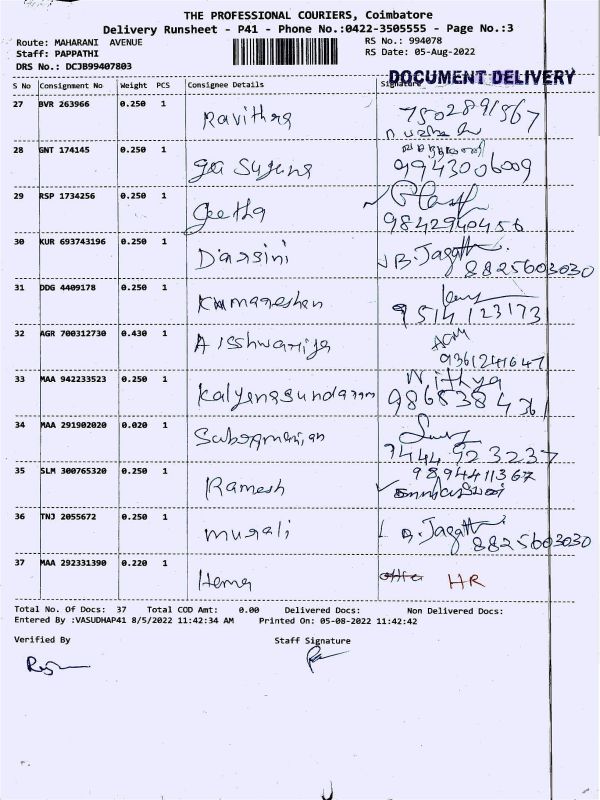 THE PROFESSIONAL COURIERS, Coimbatore
Delivery Runsheet - P41 - Phone No.:0422-3505555 - Page No.:3
Route: MAHARANI AVENUE RS No.: 994078
Staff: PAPPATHI RS Date: 05-Aug-2022
DRS No.: DCJB99407803
DOCUMENT DELIVERY
S No Consignment No Weight PCS Consignee Details Signature
27 BVR 263966 0.250 1 Ravithra 7502891567
28 GNT 174145 0.250 1 9943006009
29 RSP 1734256 0.250 1 Geetha 9842940456
30 KUR 693743196 0.250 1 Darsini B. Jagath
8825603030
31 DDG 4409178 0.250 1 Kumareshan
9514123173
32 AGR 700312730 0.430 1 Aisshwariya
9361241647
33 MAA 942233523 0.250 1 Kalyanasundaram Nithya
34 MAA 291902020 0.020 1 Subramanian
7444923237
35 SLM 300765320 0.250 1 Ramesh 9894411367
36 TNJ 2055672 0.250 1 murali B. Jagath
8825603030
37 MAA 292331390 0.220 1 Hema HR
Total No. Of Docs: 37 Total COD Amt: 0.00 Delivered Docs: Non Delivered Docs:
Entered By :VASUDHAP41 8/5/2022 11:42:34 AM Printed On: 05-08-2022 11:42:42
Verified By Staff Signature